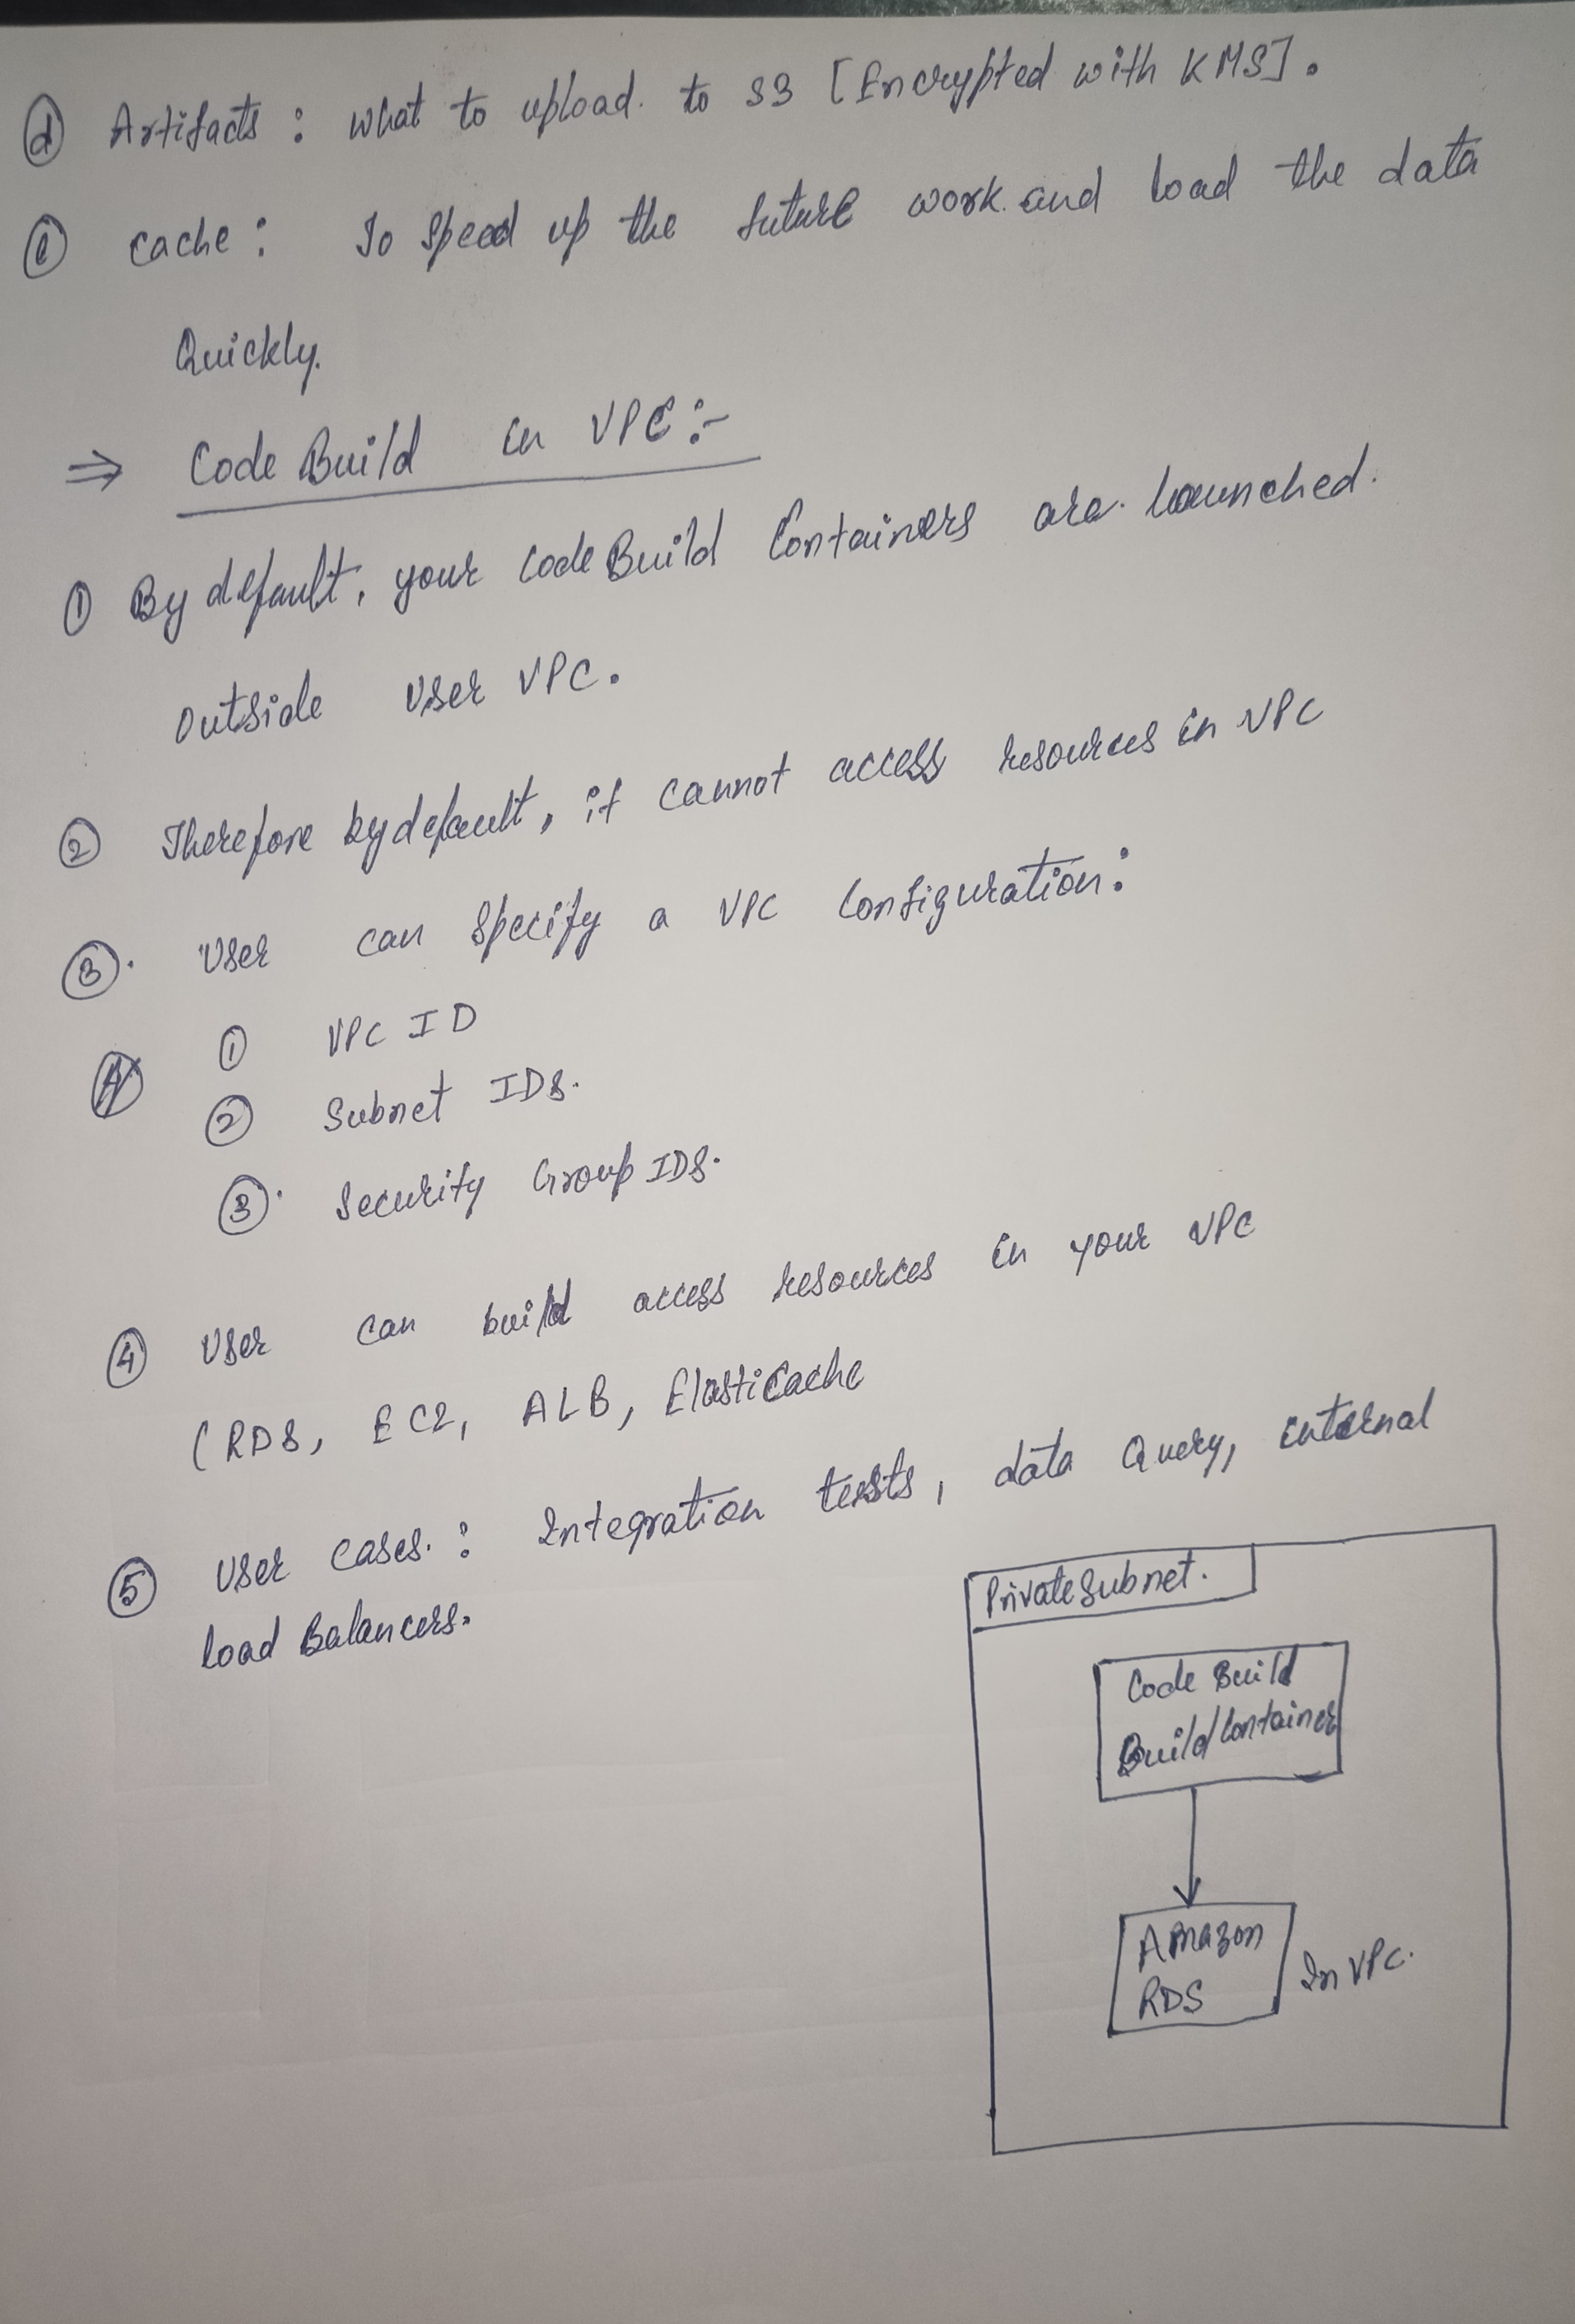 ⓓ Artifacts : what to upload. to S3 [Encrypted with KMS].
ⓔ cache : To speed up the future work. and load the data
Quickly.
⇒ Code Build in VPC :-
① By default, your Code Build Containers are. launched.
outside User VPC.
② Therefore by default, it cannot access resources in VPC
③. User can specify a VPC Configuration :
① VPC ID
② Subnet IDs.
③. Security Group IDS.
④ User can build access resources in your VPC
(RDS, EC2, ALB, ElastiCache
⑤ User cases. : Integration tests, data Query, internal
load Balancers.
Private Subnet.
Code Build
Build Container
Amazon
RDS
In VPC.